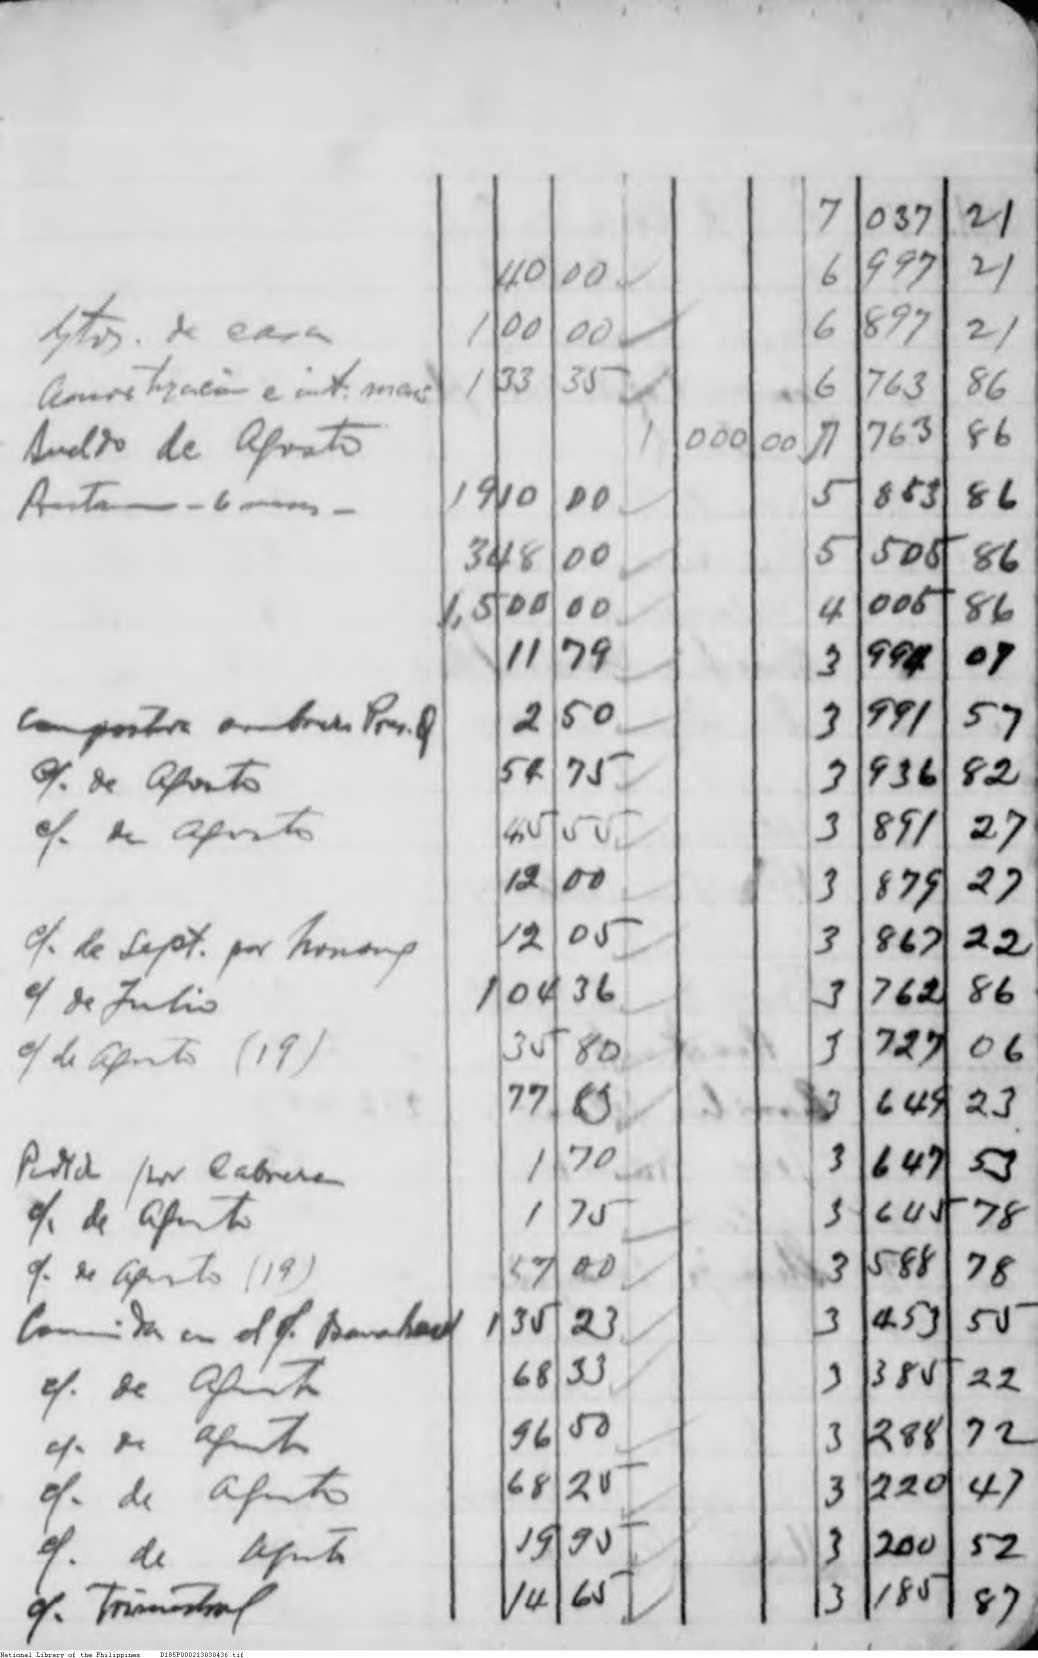 7 037 21
40 00 6 997 21
Gtos. de casa 100 00 6 897 21
Amortización e int. 133 35 6 763 86
Sueldo de Agosto 1 000 00 7 763 86
1910 00 5 853 86
348 00 5 505 86
1,500 00 4 005 86
11 79 3 994 07
Compostura sombrero Pres. Q 2 50 3 991 57
c/. de Agosto 54 75 3 936 82
c/. de Agosto 45 55 3 891 27
12 00 3 879 27
c/. de Sept. por 12 05 3 867 22
c/ de Julio 104 36 3 762 86
c/ de Agosto (19) 35 80 3 727 06
77 83 3 649 23
por Cabrera 1 70 3 647 53
c/. de Agosto 1 75 3 645 78
c/. de Agosto (19) 57 00 3 588 78
Comida en el 135 23 3 453 55
c/. de Agosto 68 33 3 385 22
c/. de Agosto 96 50 3 288 72
c/. de Agosto 68 25 3 220 47
c/. de Agosto 19 95 3 200 52
c/. Trimestral 14 65 3 185 87
National Library of the Philippines D185P000213838436.tif